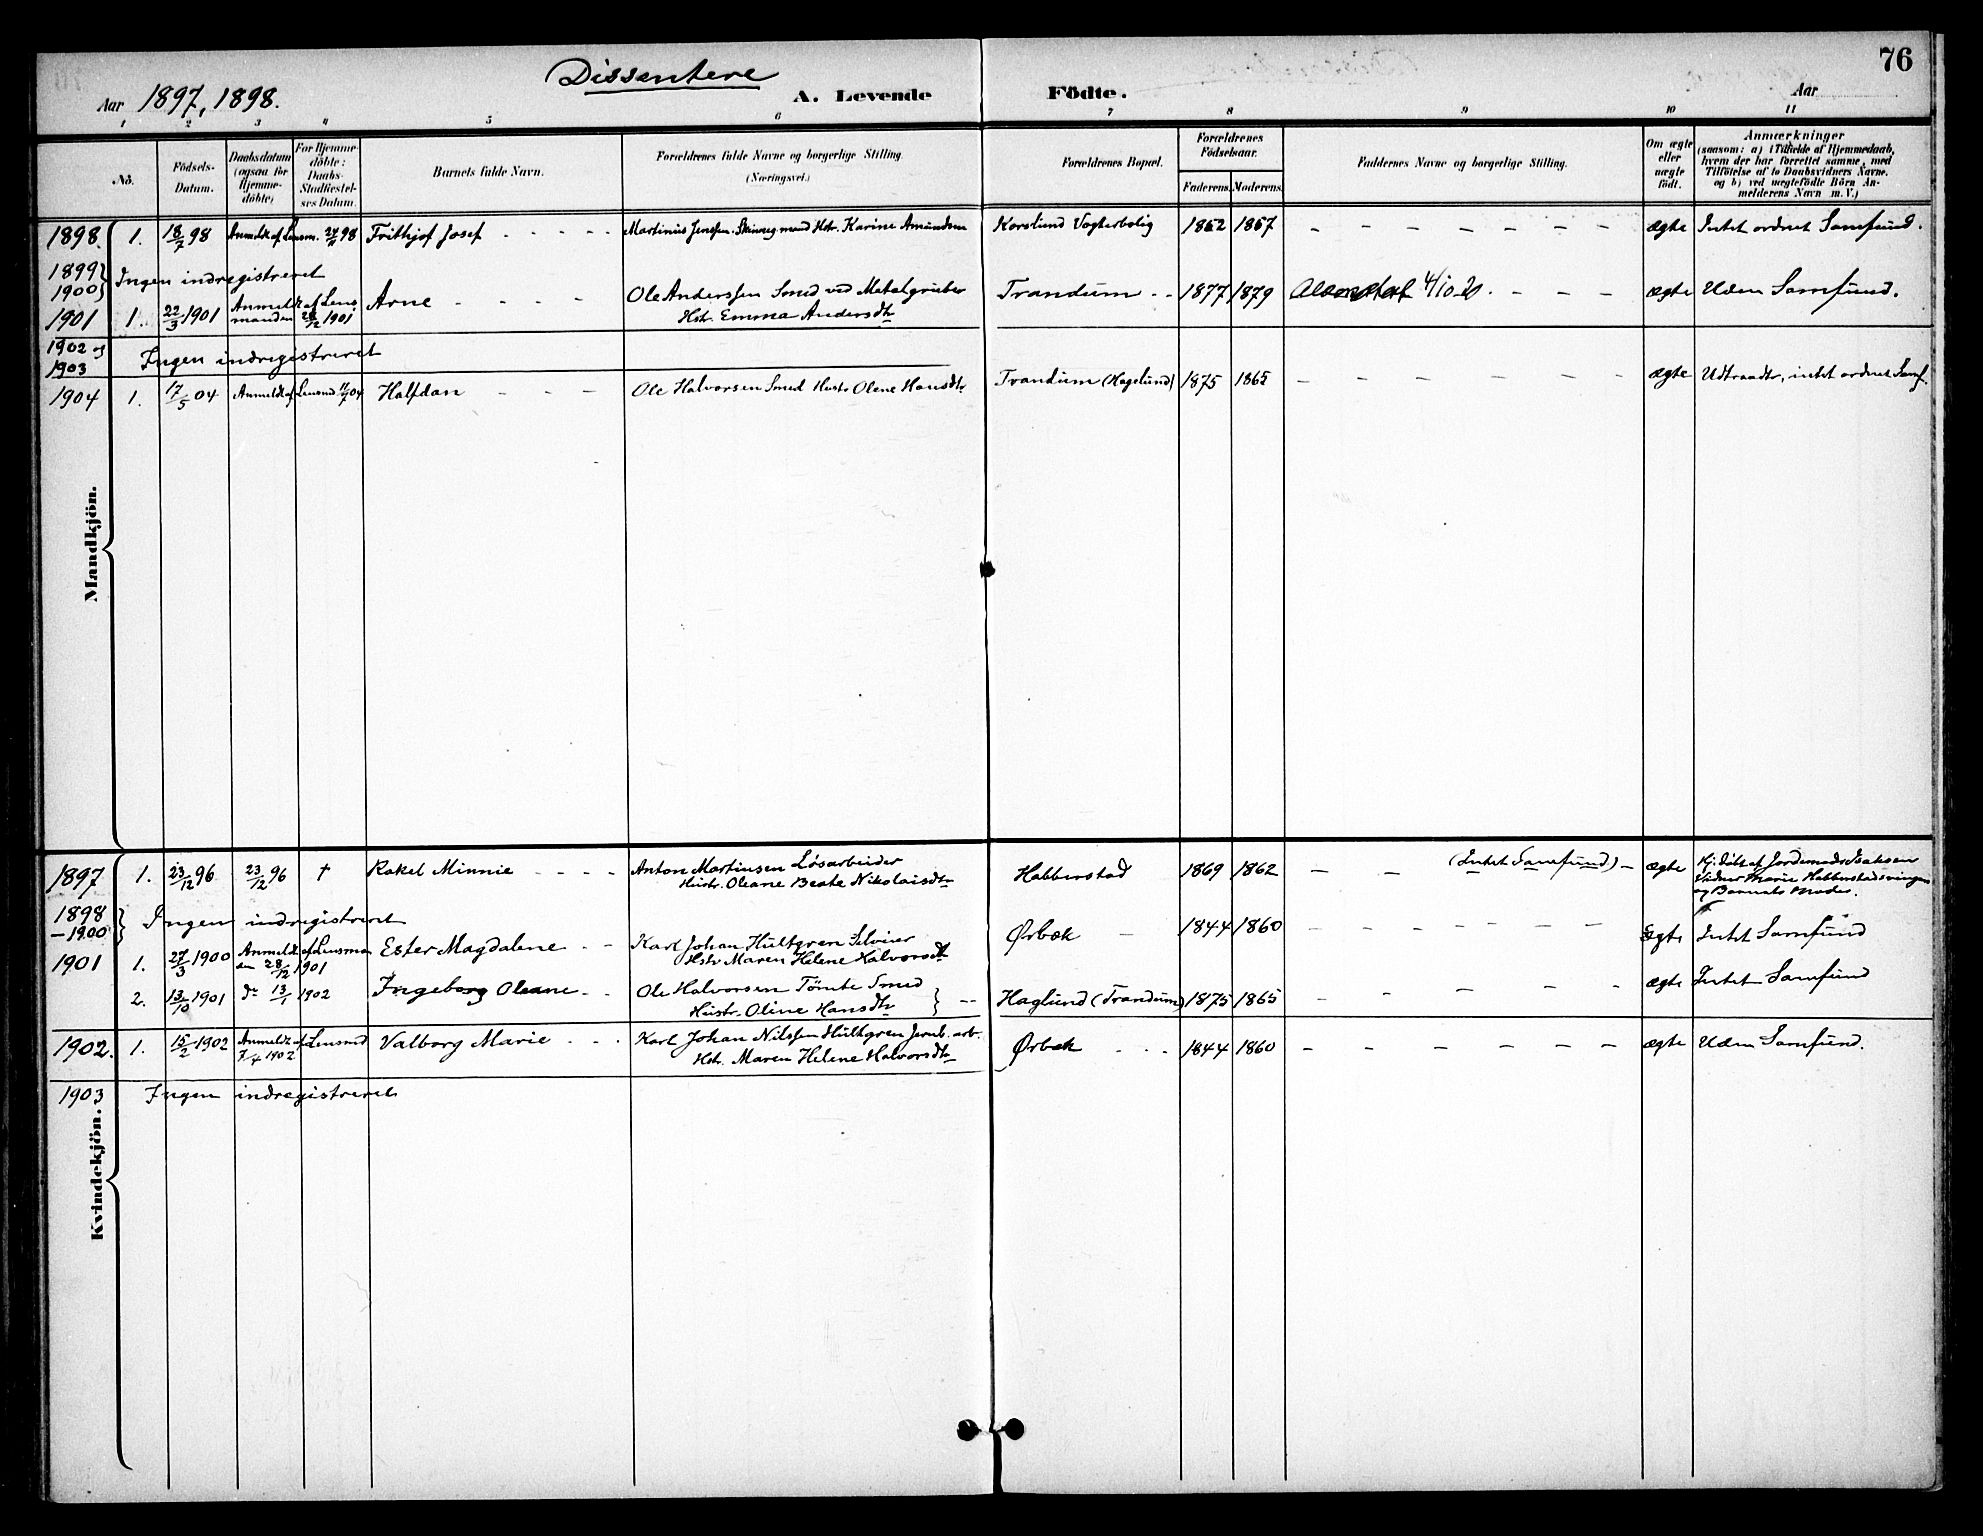 76
Dissentere
Aar 1897, 1898. A. Levende Födte. Aar
1 2 3 4 5 6 7 8 9 10 11
No.
Födsels-Datum.
Daabsdatum (ogsaa for Hjemme-döbte)
For Hjemme-döbte: Daabs-Stadfæstel-ses Datum.
Barnets fulde Navn.
Forældrenes fulde Navne og borgerlige Stilling. (Næringsvei.)
Forældrenes Bopæl.
Forældrenes Födselsaar.
Faderens. Moderens.
Faddernes Navne og borgerlige Stilling.
Om ægte eller uægte födt.
Anmærkninger (saasom: a) i Tilfælde af Hjemmedaab, hvem der har forrettet samme, med Tilföielse af to Daabsvidners Navne. og b) ved uægtefödte Börn An-melderens Navn m. V.)
Mandkjön.
1898 1. 18/7 98 Anmeldt af Lensm. 98 Frithjof Josef Martinus Jensen. Hstr. Karine Amundsen Korslund Vogterbolig 1862 1867 ægte Intet ordnet Samfund.
1899 1900 Ingen indregistreret
1901 1. 22/3 1901 Anmeldt af Lensmanden 28/12 1901 Arne Ole Anderssen Smed ved Metalgruber Trandum 1877 1879 4/10.20. ægte Uden Samfund.
Hstr. Emma Andersdtr
1902 og 1903 Ingen indregistreret
1904 1. 17/5 04 Anmeldt af Lensmd 04 Halfdan Ole Halvorsen Smed Hustr. Olene Hansdtr Trandum (Haglund) 1875 1865 ægte Udtraadte, intet ordnet Samf.
Kvindekjön.
1897 1. 23/12 96 23/12 96 † Rakel Minnie Anton Martinsen Løsarbeider Habberstad 1869 1862 (Intet Samfund) ægte Hj. döbt af Jordemoder Isaksen
Hustr. Oleane Beate Nikolaisdtr Vidner Marie Habberstadsvingen
og Barnets Moder.
1898 – 1900 Ingen indregistreret
1901 1. 27/3 1900 Anmeldt af Lensmanden 28/12 1901 Ester Magdalene Karl Johan Hultgren Ørbæk 1844 1860 ægte Intet Samfund
Hstr Maren Helene Halvorsdtr
2. 13/10 1901 do 13/1 1902 Ingeborg Oleane Ole Halvorsen Tömte Smed Haglund (Trandum) 1875 1865 ægte Intet Samfund
Hustr. Oline Hansdtr
1902. 1. 15/2 1902 Anmeldt af Lensmd 7/4 1902 Valborg Marie Karl Johan Nilssen Hultgren Jernb. arb. Ørbæk 1844 1860 ægte Uden Samfund.
Hstr. Maren Helene Halvorsdtr
1903 Ingen indregistreret